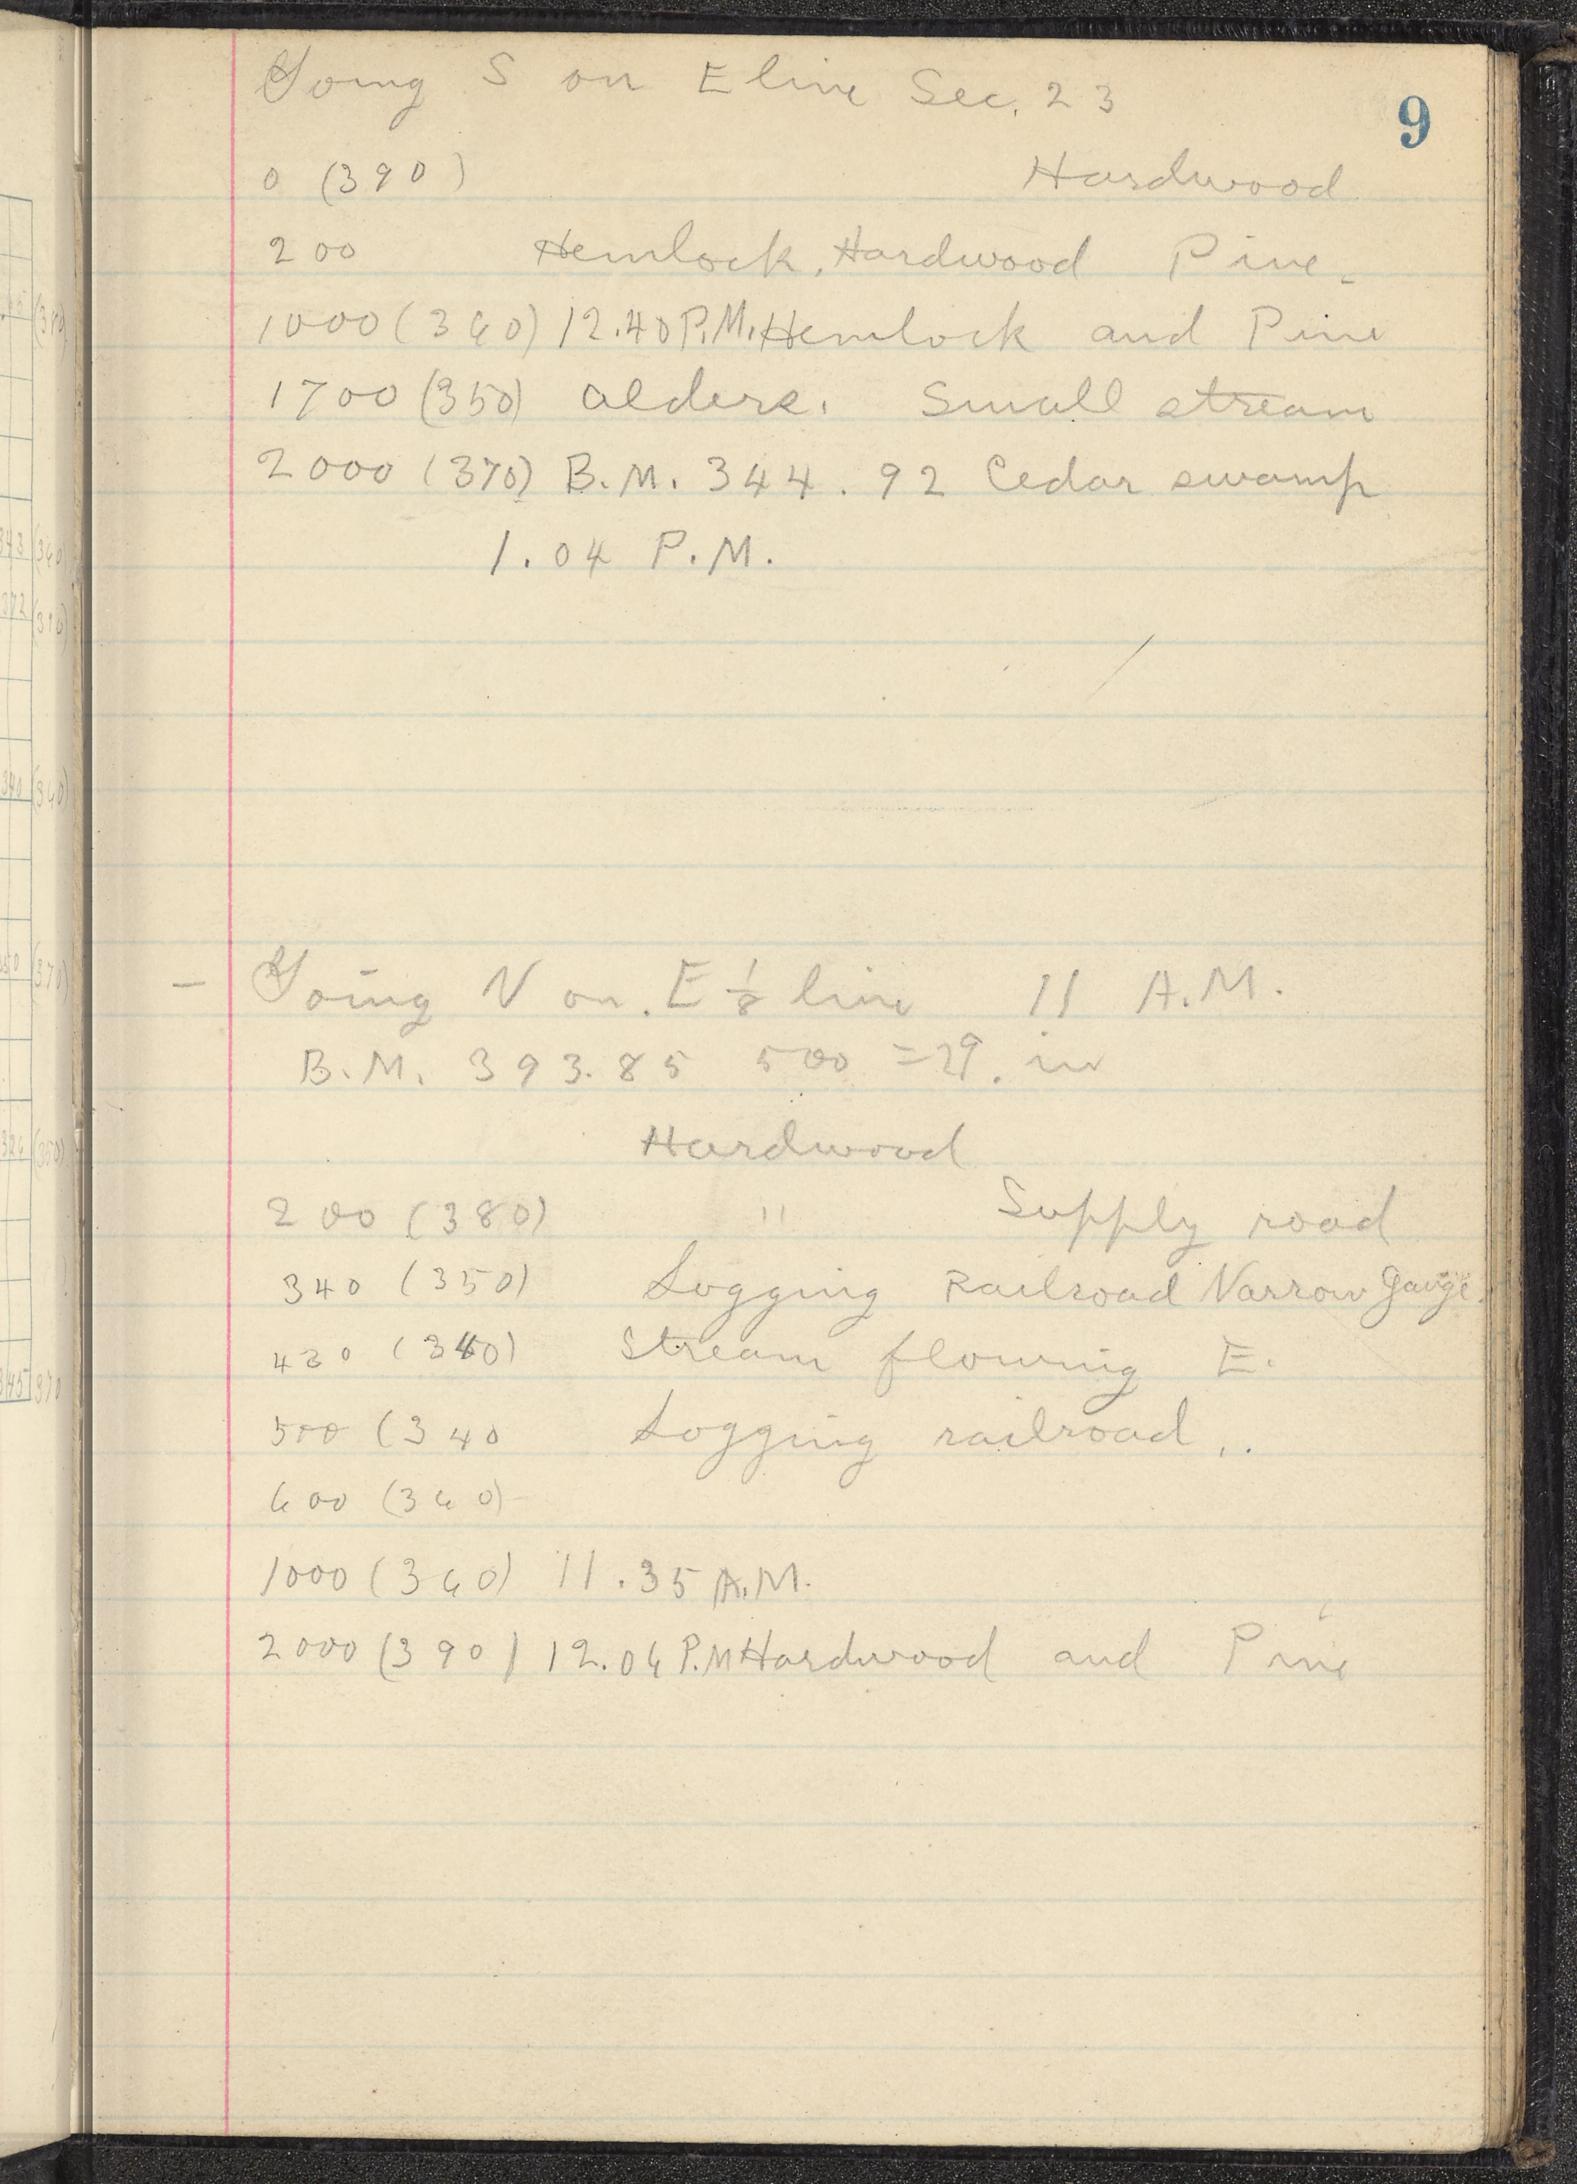 Going S on E line Sec. 23
9
0 (390) Hardwood
200 Hemlock, Hardwood Pine.
1000 (360) 12.40 P.M. Hemlock and Pine
1700 (350) Alders. Small stream
2000 (370) B.M. 344.92 Cedar swamp
1.04 P.M.
– Going N on. E 1/8 line 11 A.M.
B.M. 393.85 500 = 29. in
Hardwood
200 (380) " Supply road
340 (350) Logging Railroad Narrow Gauge.
430 (340) Stream flowing E.
500 (340 Logging railroad..
600 (360)
1000 (360) 11.35 A.M.
2000 (390) 12.06 P.M Hardwood and Pine